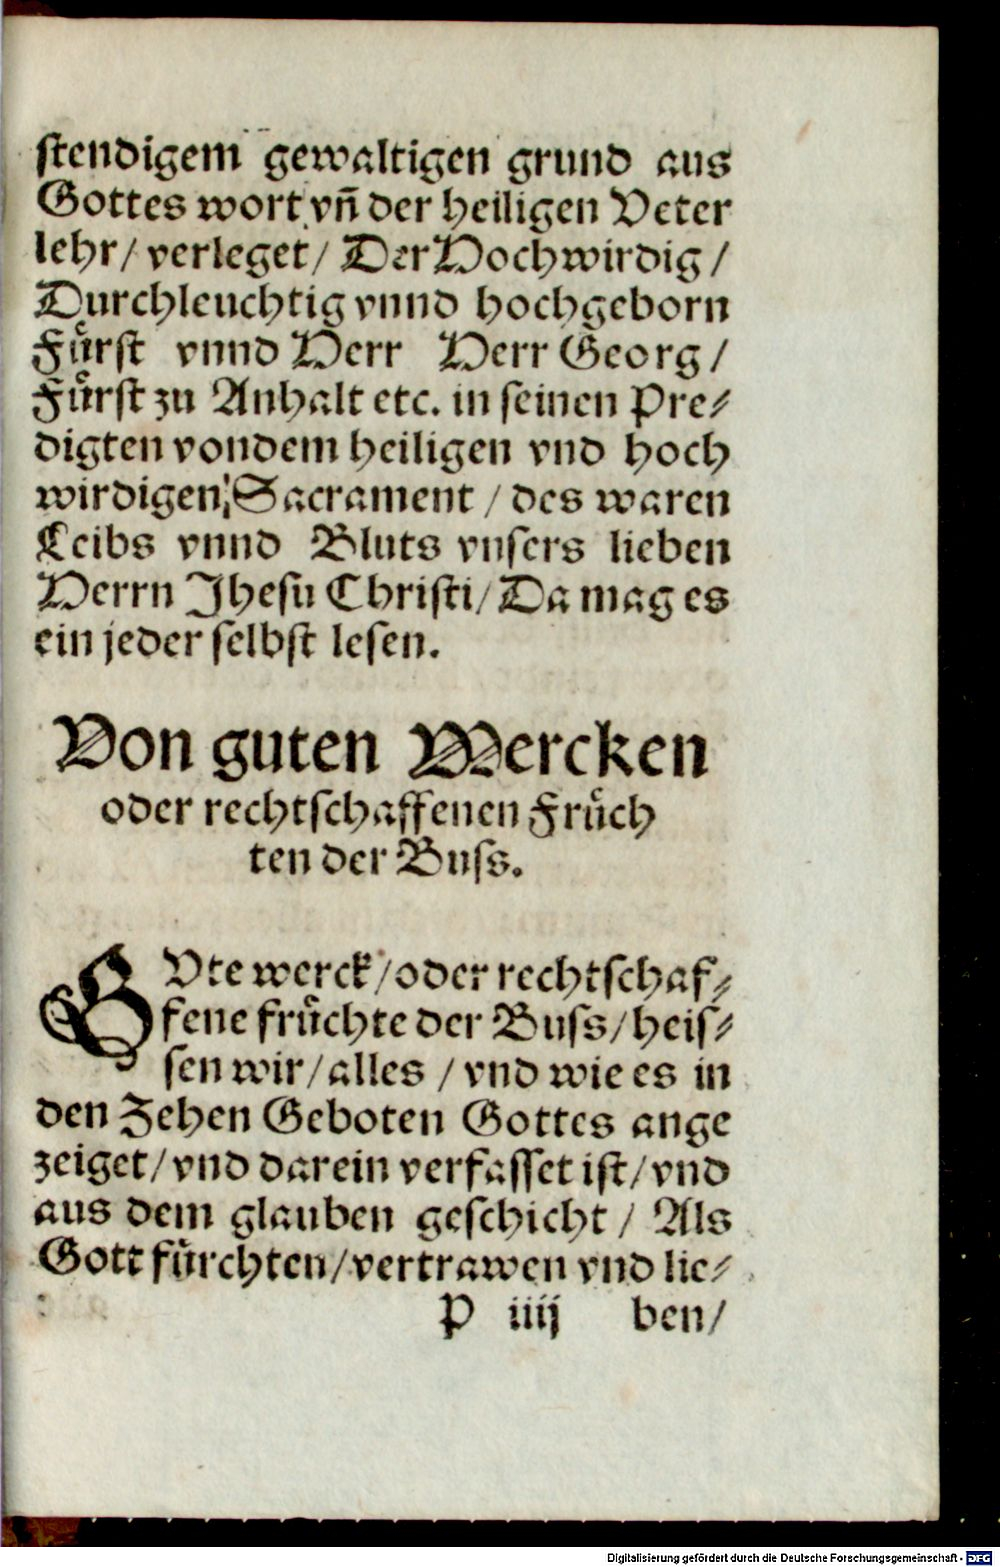 ſtendigem gewaltigen grund aus
Gottes wort vñ der heiligen Veter
lehr/ verleget/ Der Hochwirdig /
Durchleuchtig vnnd hochgeborn
Fuͤrst vnnd Herr Herr Georg /
Fuͤrſt zu Anhalt etc. in ſeinen Pre⸗
digten von dem heiligen vnd hoch
wirdigen Sacrament / des waren
Leibs vnnd Bluts vnſers lieben
Herrn Jheſu Chriſti/ Da mag es
ein jeder ſelbſt leſen.
Von guten Wercken
oder rechtſchaffenen Fruͤch
ten der Buſs.
GVte werck/ oder rechtſchaf⸗
fene fruͤchte der Buſs/ heiſ⸗
ſen wir/ alles / vnd wie es in
den Zehen Geboten Gottes ange
zeiget/ vnd darein verfaſſet iſt/ vnd
aus dem glauben geſchicht / Als
Gott fuͤrchten/ vertrawen vnd lie⸗
P iiij ben/
Digitalisierung gefördert durch die Deutsche Forschungsgemeinschaft - DFG